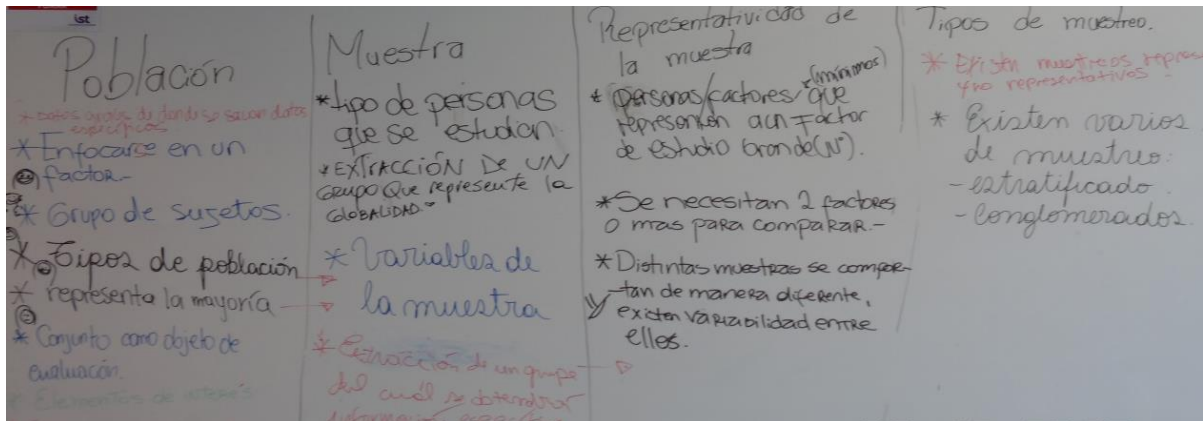 ist
Población
* datos de donde se sacan datos
específicos
* Enfocarse en un
factor-
* Grupo de sujetos.
* Tipos de población
* representa la mayoría
* Conjunto como objeto de
evaluación.
* Elementos de interés
Muestra
*tipo de personas
que se estudian
*EXTRACCIÓN DE UN
GRUPO QUE represente la
GLOBALIDAD-
* Variables de
la muestra
* Extracción de un grupo
del cuál se obtendrá
Representatividad de
la muestra
(mínimos)
* personas/factores que
representen a un Factor
de estudio Grande(Nº).
*Se necesitan 2 factores
o mas para comparar.-
*Distintas muestras se compor-
tan de manera diferente,
y existen variabilidad entre
elles.
Tipos de muestreo.
* Existen muestreos repres
y no representativos
* Existen varios
de muestreo:
-estratificado.
-Conglomerados.